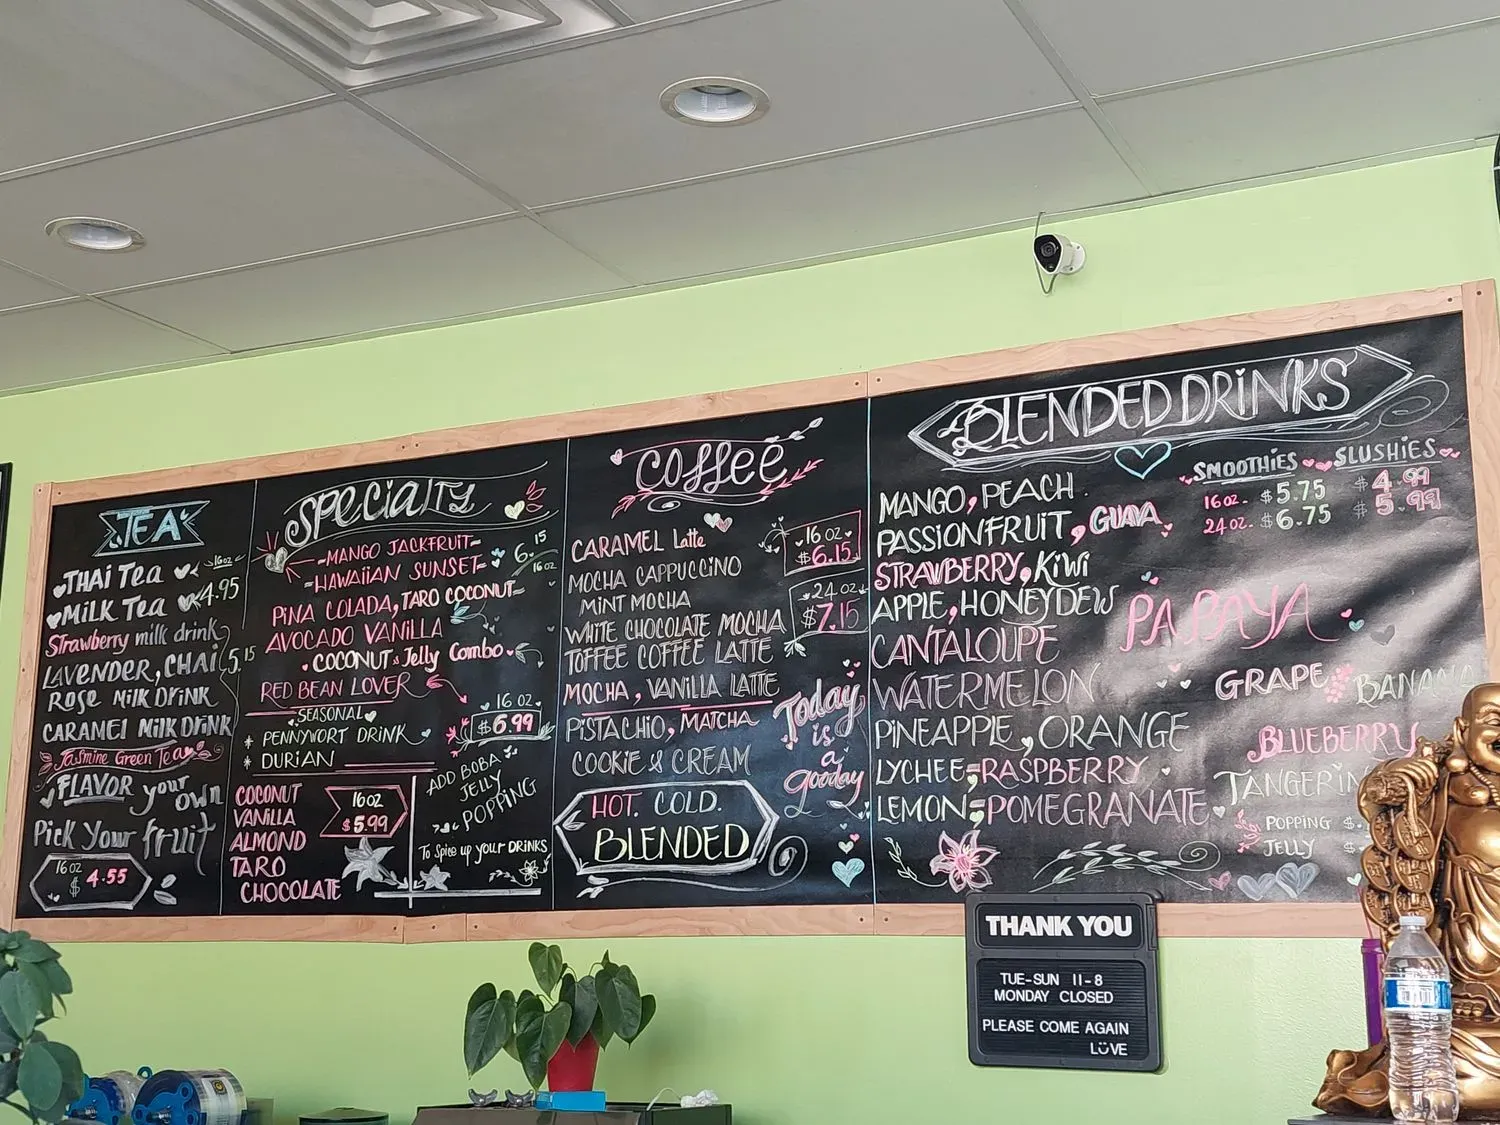 TEA
16oz
THAI TEA
MILK TEA 4.95
Strawberry milk drink
LAVENDER, CHAI 5.15
ROSE MILK DRINK
CARAMEL MILK DRINK
Jasmine Green Tea
FLAVOR your own
Pick your fruit
16 OZ
$ 4.55
SPECIALTY
~MANGO JACKFRUIT~
~HAWAIIAN SUNSET~
6.15
16oz
PINA COLADA, TARO COCONUT~
AVOCADO VANILLA
COCONUT & Jelly Combo
RED BEAN LOVER
16 OZ
$6.99
SEASONAL
* PENNYWORT DRINK
* DURIAN
COCONUT
VANILLA
ALMOND
TARO
CHOCOLATE
16OZ
$5.99
ADD BOBA
JELLY
POPPING
TO Spice up your DRINKS
COFFEE
CARAMEL Latte
MOCHA CAPPUCCINO
MINT MOCHA
WHITE CHOCOLATE MOCHA
TOFFEE COFFEE LATTE
MOCHA, VANILLA LATTE
PISTACHIO, MATCHA
COOKIE & CREAM
16 OZ
$6.15
24 OZ
$7.15
Today
is
a
gooday
HOT. COLD.
BLENDED
BLENDED DRINKS
SMOOTHIES SLUSHIES
16 OZ- $5.75 $4.99
24 OZ- $6.75 $5.99
MANGO, PEACH
PASSIONFRUIT, GUAVA
STRAWBERRY, KIWI
APPLE, HONEYDEW
CANTALOUPE PAPAYA
WATERMELON GRAPE BANANA
PINEAPPLE, ORANGE BLUEBERRY
LYCHEE, RASPBERRY
LEMON, POMEGRANATE
POPPING $.
JELLY $.
THANK YOU
TUE-SUN 11-8
MONDAY CLOSED
PLEASE COME AGAIN
LÜVE